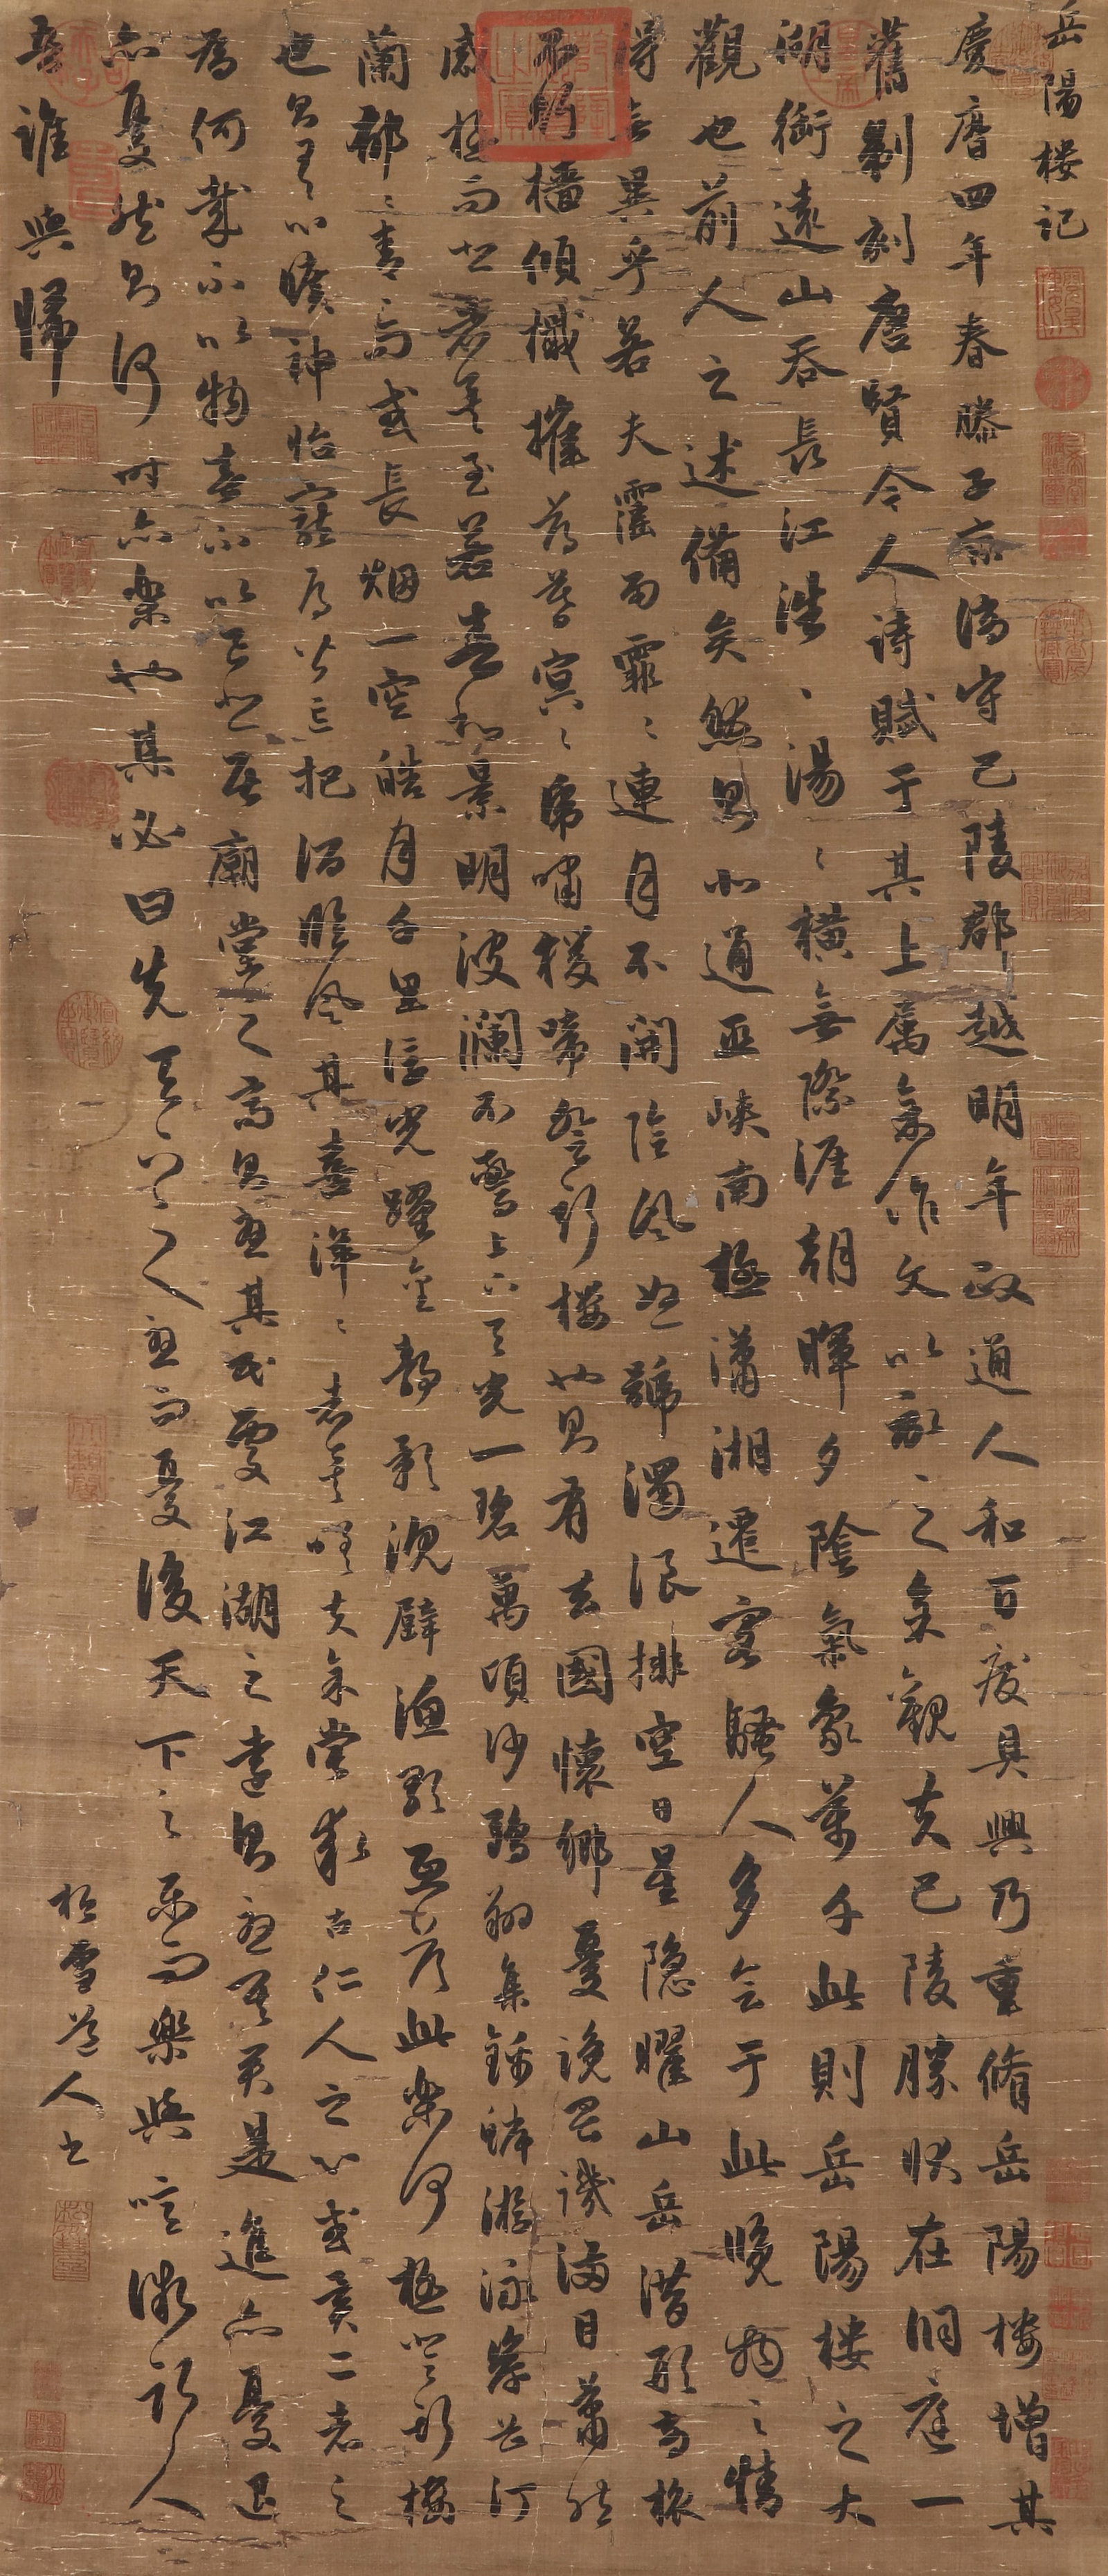 岳陽楼記
慶曆四年春滕子京謫守巴陵郡越明年政通人和百廢具興乃重脩岳陽楼增其
舊制刻唐賢今人詩賦于其上属余作文以記之余觀夫巴陵勝狀在洞庭一
湖銜遠山吞長江浩〻湯〻横無際涯朝暉夕陰氣象萬千此則岳陽楼之大
觀也前人之述備矣然則北通巫峽南極瀟湘遷客騷人多会于此覽物之情
得無異乎若夫霪雨霏〻連月不開陰風怒號濁浪排空日星隐曜山岳潜形商旅
不行檣傾檝摧薄暮冥〻虎嘯猨啼登斯楼也則有去國懷鄉憂讒畏譏滿目蕭然
感極而悲者矣至若春和景明波瀾不驚上下天光一碧萬頃沙鷗翔集錦鱗游泳岸芷汀
蘭郁〻青〻而或長烟一空皓月千里浮光躍金靜影沉璧漁歌互答此樂何極登斯樓
也則有心曠神怡寵辱皆忘把酒臨風其喜洋〻者矣嗟夫余嘗求古仁人之心或異二者之
為何哉不以物喜不以己悲居廟堂之高則憂其民處江湖之遠則憂其君是進亦憂退
亦憂然則何時亦樂也其必曰先天下之憂而憂後天下之樂而樂與噫微斯人
吾誰與歸
松雪道人書